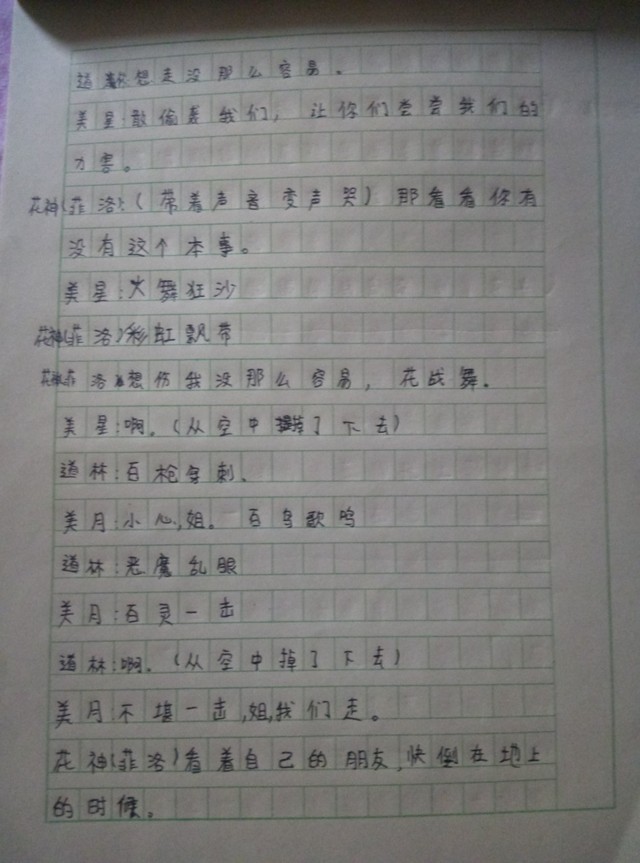 道林:想走没那么容易。
美星:敢偷袭我们,让你们尝尝我们的
力害。
花神(菲洛):(带着声音变声哭)那看看你有
没有这个本事。
美星:火舞狂沙
花神(菲洛)彩虹飘带
花神(菲洛)想伤我没那么容易,花战舞。
美星:啊。(从空中掉了下去)
道林:百枪穿刺。
美月:小心,姐。百鸟歌鸣
道林:恶魔乱眼
美月:百灵一击
道林:啊。(从空中掉了下去)
美月:不堪一击,姐,我们走。
花神(菲洛)看着自己的朋友,快倒在地上
的时候。